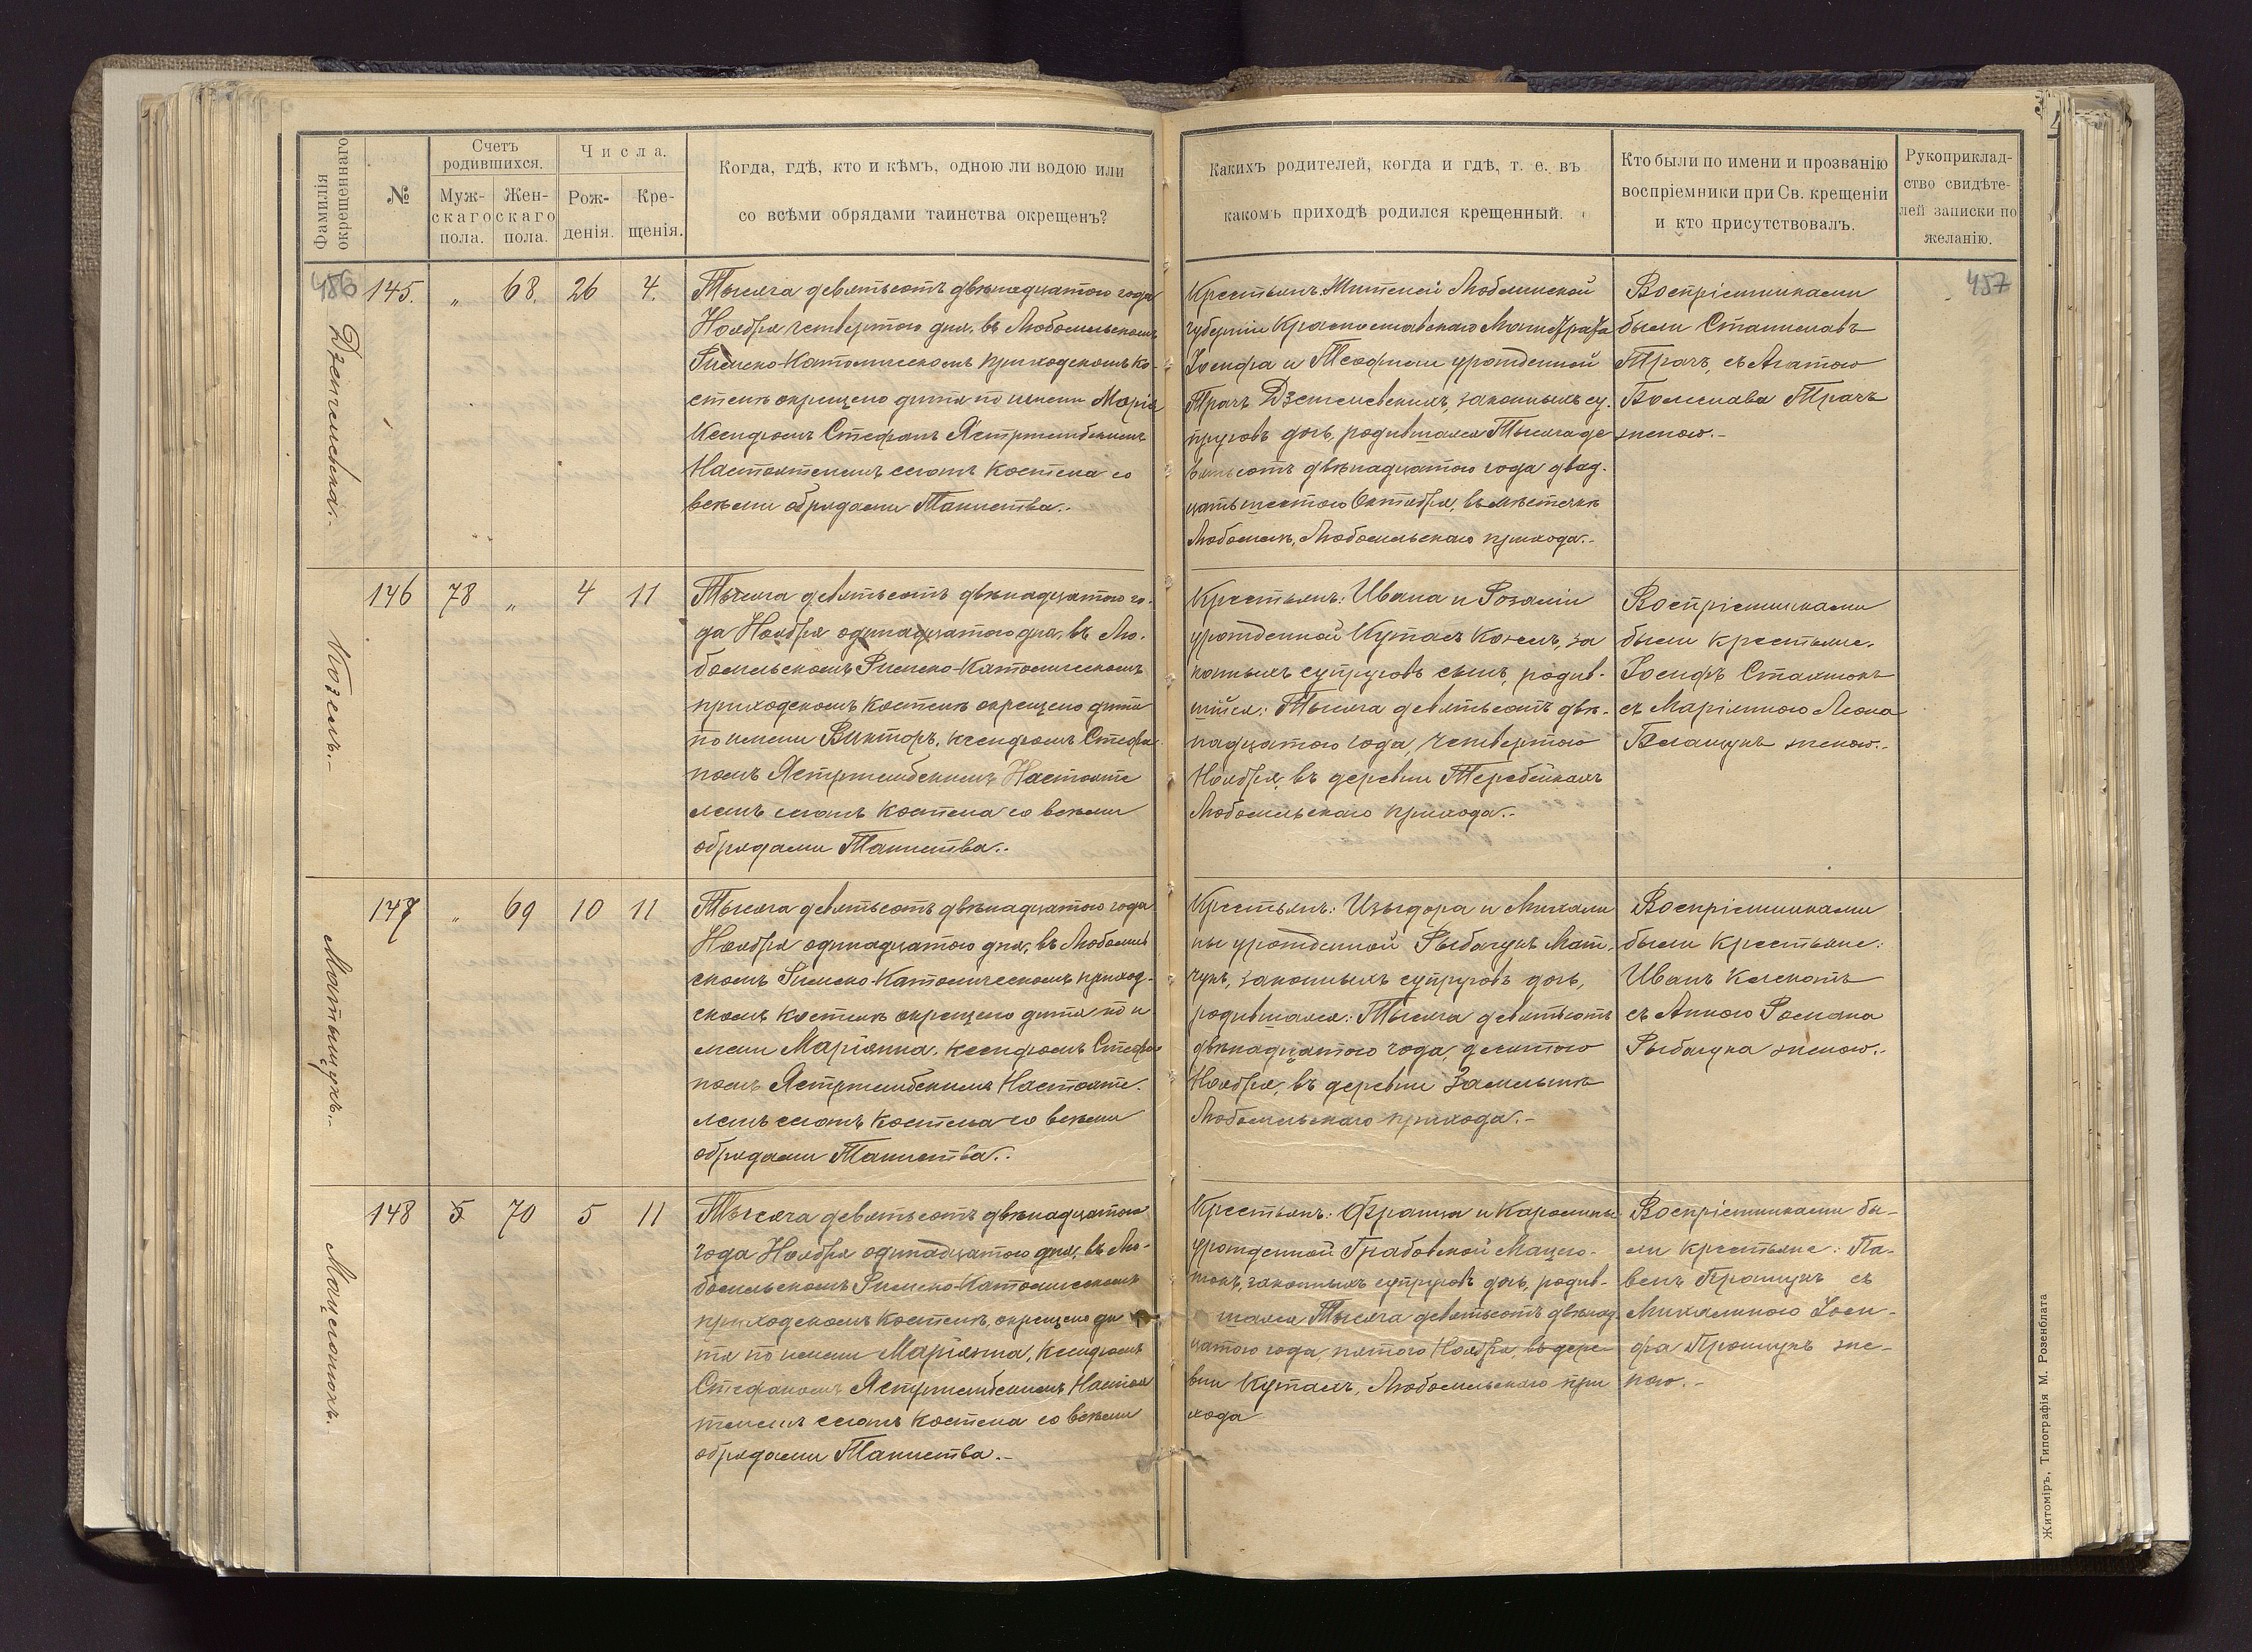 Фамилія
окрещеннаго
№
Счетъ
родившихся.
Муж-
скаго
пола.
Жен-
скаго
пола.
Числа.
Рож-
денія.
Кре-
щенія.
Когда, гдѣ, кто и кѣмъ, одною ли водою или
со всѣми обрядами таинства окрещенъ?
Какихъ родителей, когда и гдѣ, т. е. въ
какомъ приходѣ родился крещенный.
Кто были по имени и прозванію
воспріемники при Св. крещеніи
и кто присутствовалъ.
Рукоприклад-
ство свидѣте-
лей записки по
желанію.
456
145. „ 68. 26 4.
Тысяча девятьсотъ двѣнадцатого года
Ноября четвертого дня, въ Любомльскомъ
Римско-Католическомъ приходскомъ ко-
стелѣ окрещено дитя по имени Марія
Ксендзомъ Стефан Ястржембскимъ
Настоятелемъ сюгп Костела со
всѣми обрядами Таинства.-
Крестьянъ: Жителей Люблинской
губерніи Красноставскаго Магистрата
Іосифа и Теофили урожденной
Трачъ Дзенгелевскихъ, законныхъ су-
пруговъ дочь, родившаяся Тысяча де
вятьсотъ двѣнадцатого года двад-
цать шестого Октября, въ мѣстечкѣ
Любомлѣ, Любомльскаго прихода.-
Воспріемниками
были Станиславъ
Трачъ, съ Агатою
Болеслава Трачъ
женою.-
457
Козелъ.-
146 78 „ 4 11
Тысяча девятьсотъ двѣнадцатого го-
да Ноября одинадцатого дня, въ Лю-
бомльскомъ Римско-Католическомъ
приходскомъ Костелѣ окрещено дитя
по имени Викторъ, Ксендзомъ Стефа
номъ Ястржембскимъ Настояте
лемъ Костела со всѣми
обрядами Таинства.-
Крестьянъ: Ивана и Розаліи
урожденной Кутасъ Козелъ, за
конныхъ супруговъ сынъ, родив-
шійся: Тысяча девятьсотъ двѣ-
надцатого года, четвертого
Ноября, въ деревни Теребейкахъ
Любомльскаго прихода.-
Воспріемниками
были Крестьяне:
Іосифъ
съ Маріянною Леона
женою.-
Матыщукъ.-
147 „ 69 10 11
Тысяча девятьсотъ двѣнадцатого года
Ноября одинадцатого дня, въ Любомль
скомъ Римско-Католическомъ приход-
скомъ Костелѣ окрещено дитя по и
мени Маріянна, Ксендзомъ Стефа
номъ Ястржембскимъ Настояте-
лемъ Костела со всѣми
обрядами Таинства.-
Крестьянъ: Изыдора и Михали
ны урожденной Рыбачукъ Мат-
чукъ, законныхъ супруговъ дочь,
родившаяся: Тысяча девятьсотъ
двѣнадцатого года, десятого
Ноября, въ деревни Замлынѣ
Любомльскаго прихода.-
Воспріемниками
были Крестьяне:
Иванъ
съ Анною Романа
Рыбачука женою.-
148 5 70 5 11
Тысяча девятьсотъ двѣнадцатого
года Ноября одинадцатого дня, въ Лю-
бомльскомъ Римско-Католическомъ
приходскомъ Костелѣ, окрещено ди
тя по имени Маріянна, Ксендзомъ
Стефаномъ Ястржембскимъ Настоя
телемъ Костела со всѣми
обрядами Таинства.-
Крестьянъ: Франца и Каролины
урожденной Грабовской
законныхъ супруговъ дочь, родив-
шаяся Тысяча девятьсотъ двѣнад-
цатого года, пятого Ноября, въ дере-
вни Кутахъ, Любомльскаго при
хода
Воспріемниками бы-
ли Крестьяне: Па-
велъ съ
Михалиною Іоси-
фа же-
ною.-
Житоміръ, Типографія М. Розенблата